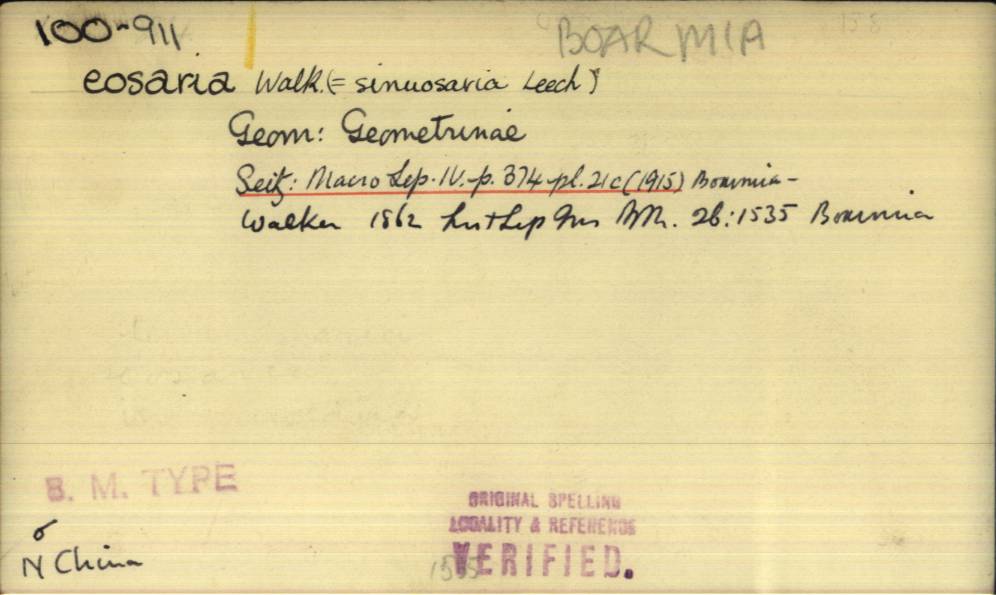 100-911
BOARMIA
eosaria Walk. (= sinuosaria Leech)
Geom: Geometrinae
Seitz: Macro Lep. IV. p. 374 pl. 21c (1915) Boarmia -
Walker 1862 List Lep Ins BM. 26: 1535 Boarmia
B. M. TYPE
ORIGINAL SPELLING
LOCALITY & REFERENCE
VERIFIED.
♂
N China